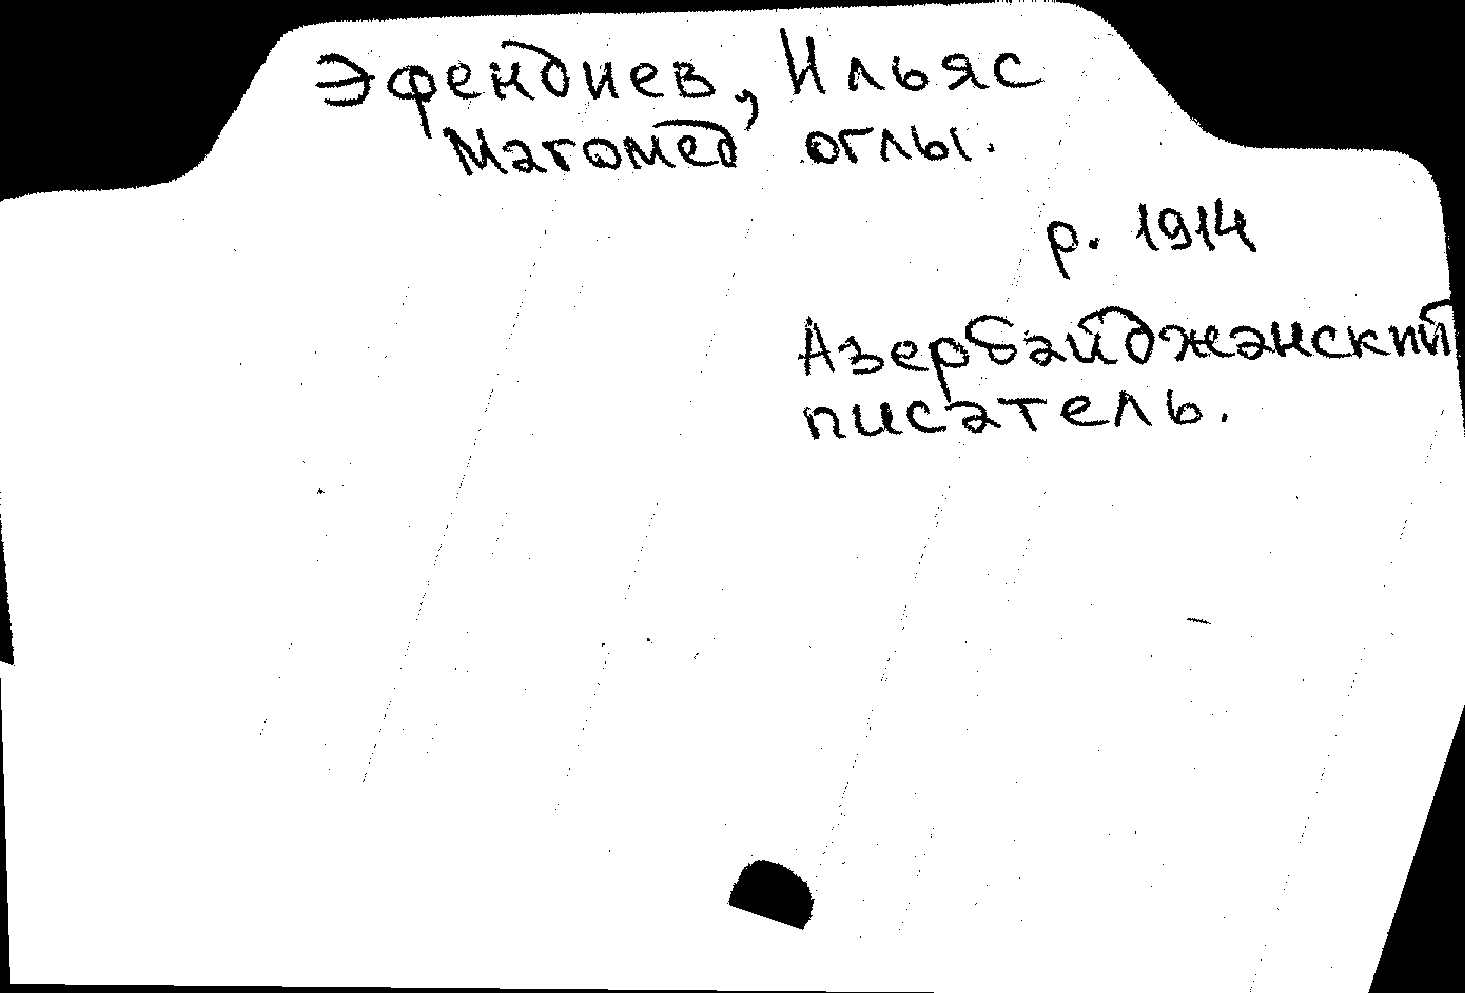 Эфендиев, Ильяс
Магомед оглы.
р. 1914
Азербайджанский
писатель.